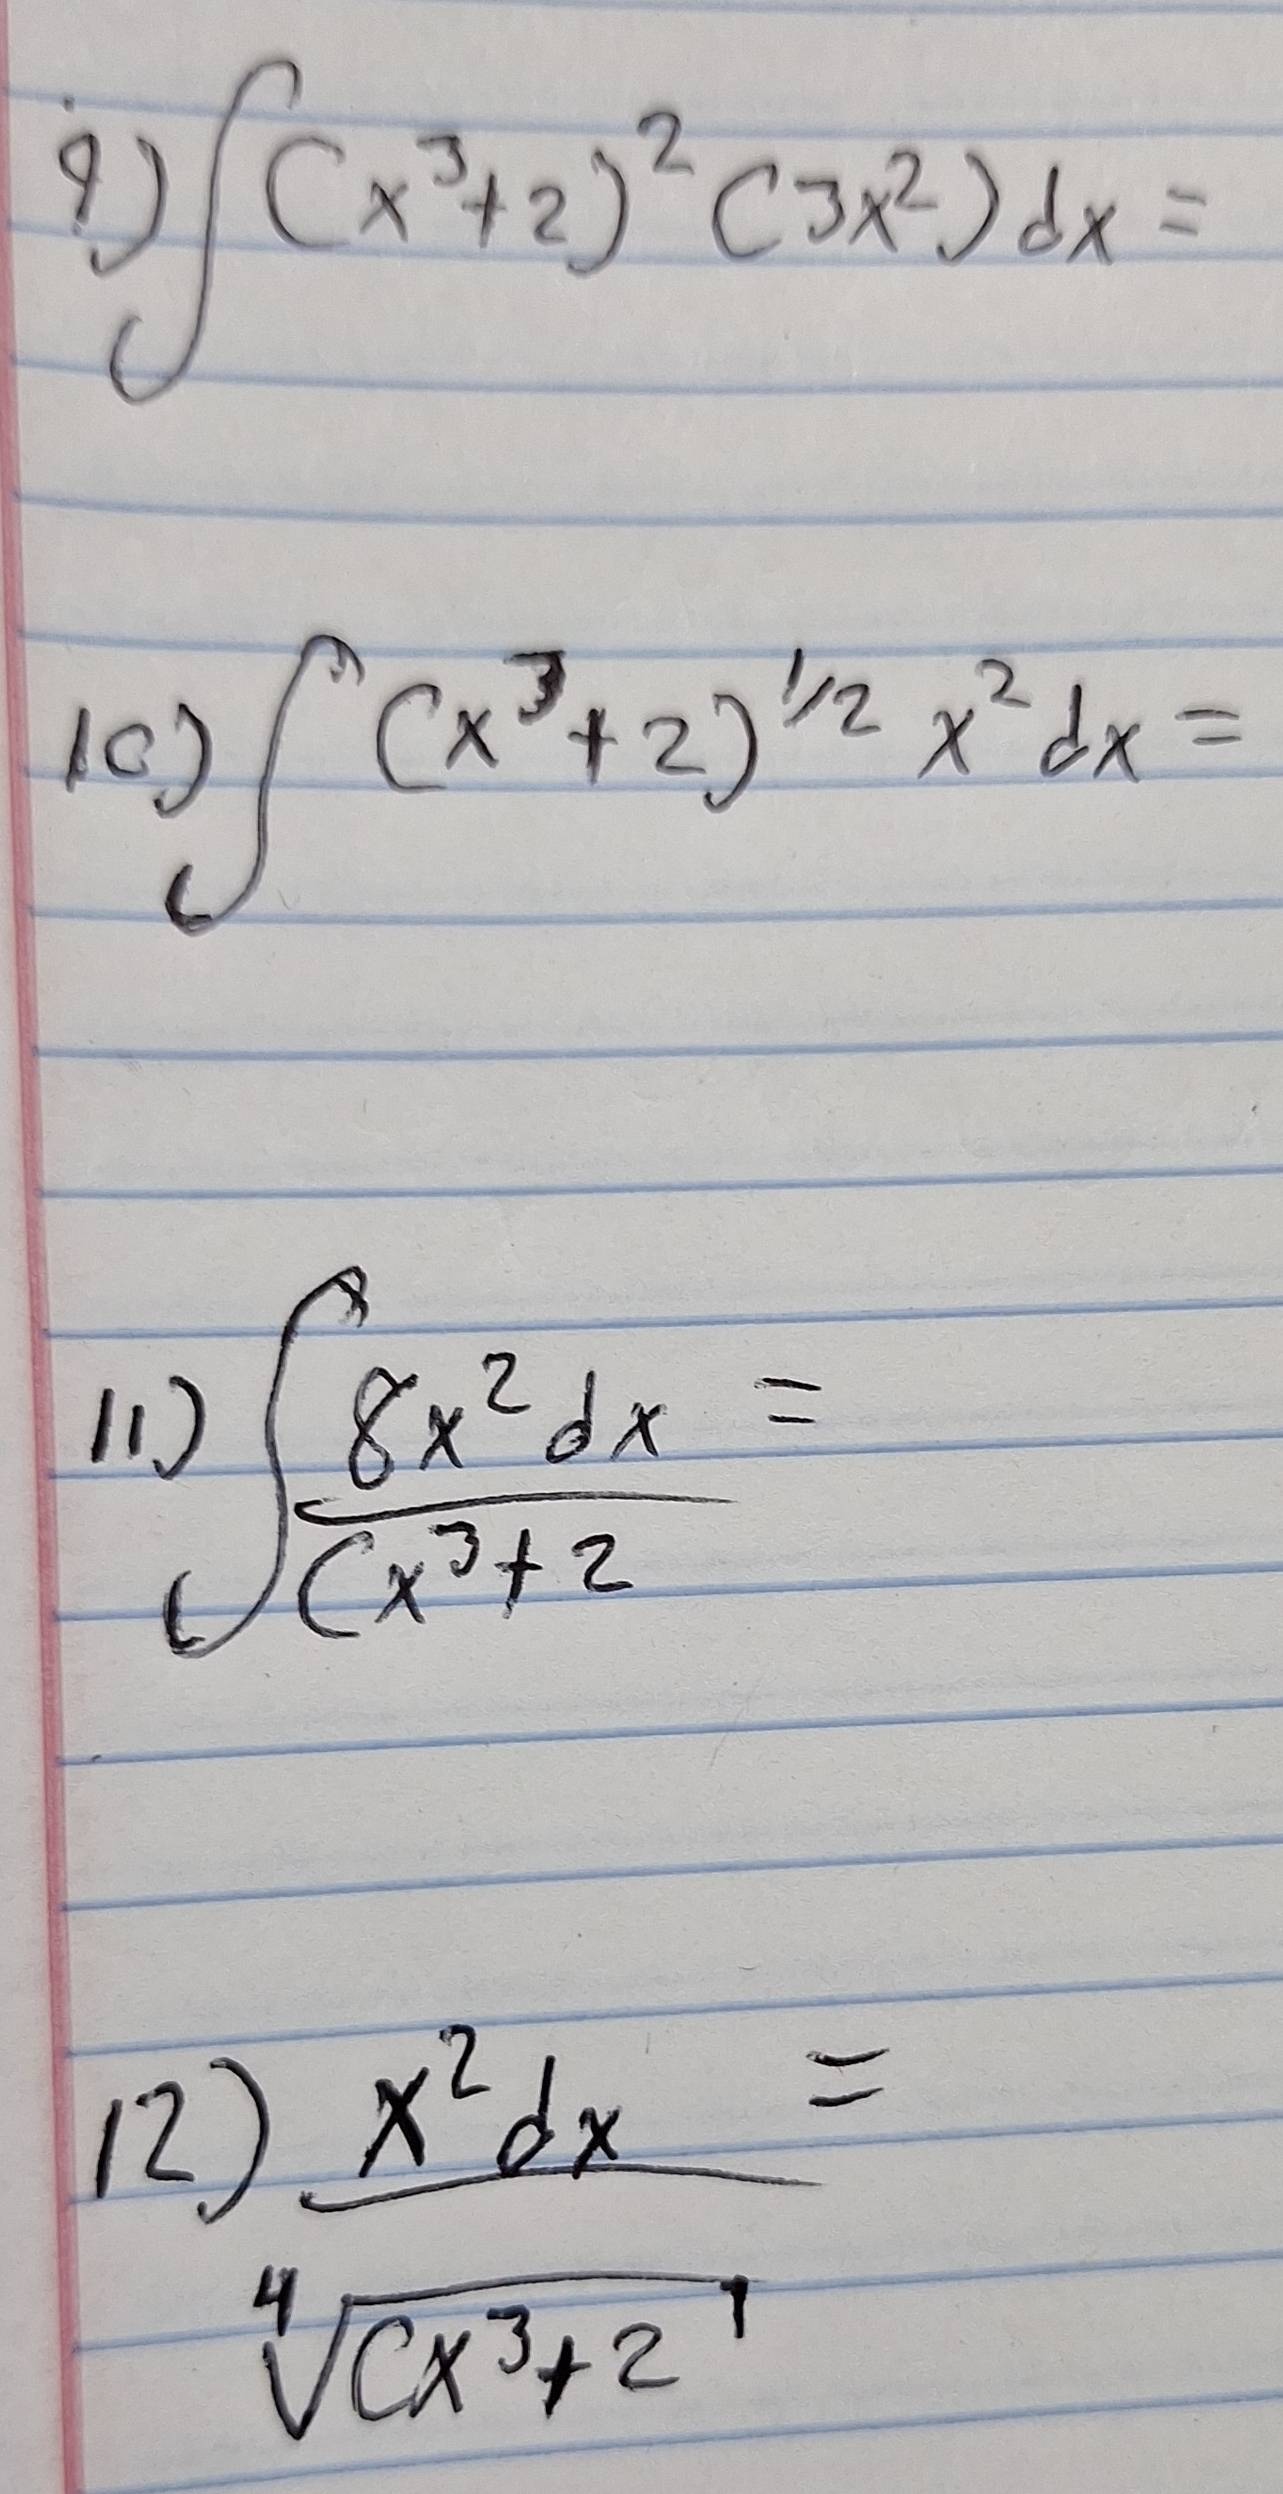 9) ∫(x³+2)²(3x²)dx=
10) ∫(x³+2)^1/2 x²dx=
11) ∫8x²dx =
(x³+2
12) x²dx =
⁴√(x³+2